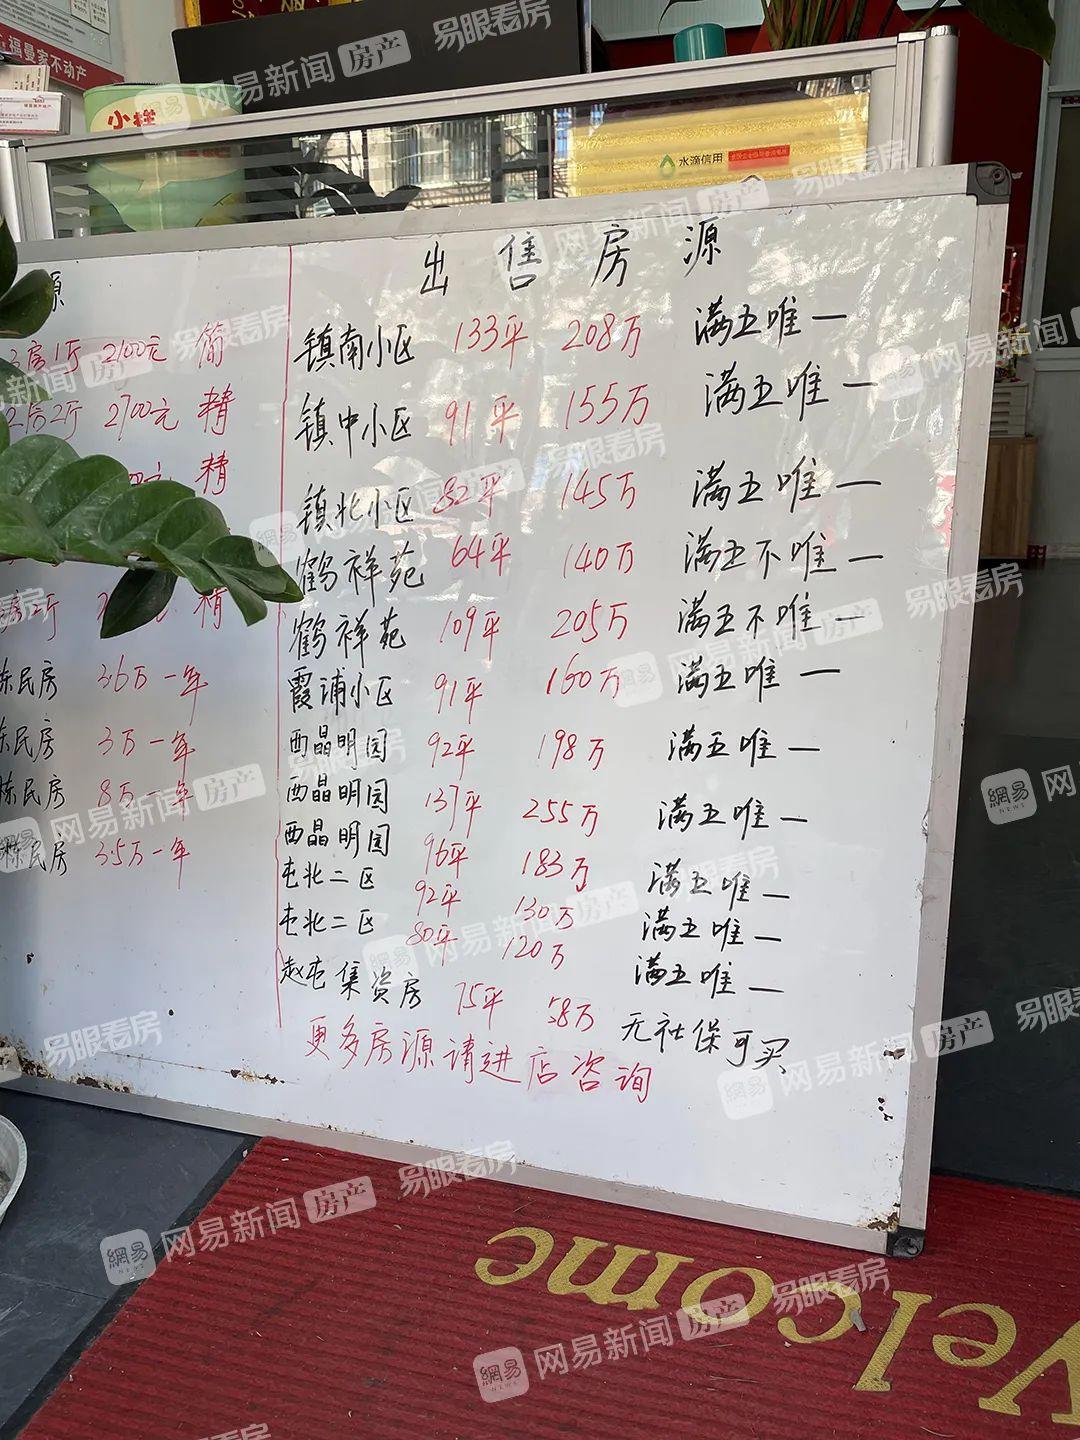 福曼家不动产
小样
水滴信用
源
出售房源
3房1厅 2100元 简
2房2厅 2700元 精
精
2厅 精
栋民房 3.6万一年
栋民房 3万一年
栋民房 8万一年
栋民房 3.5万一年
镇南小区 133平 208万 满五唯一
镇中小区 91平 155万 满五唯一
镇北小区 82平 145万 满五唯一
鹤祥苑 64平 140万 满五不唯一
鹤祥苑 109平 205万 满五不唯一
霞浦小区 91平 160万 满五唯一
西晶明园 92平 198万 满五唯一
西晶明园 137平 255万 满五唯一
西晶明园 96平 183万 满五唯一
屯北二区 92平 130万 满五唯一
屯北二区 80平 120万 满五唯一
赵屯集资房 75平 58万 无社保可买
更多房源请进店咨询
Welcome
網易 NEWS 网易新闻 房产 易眼看房